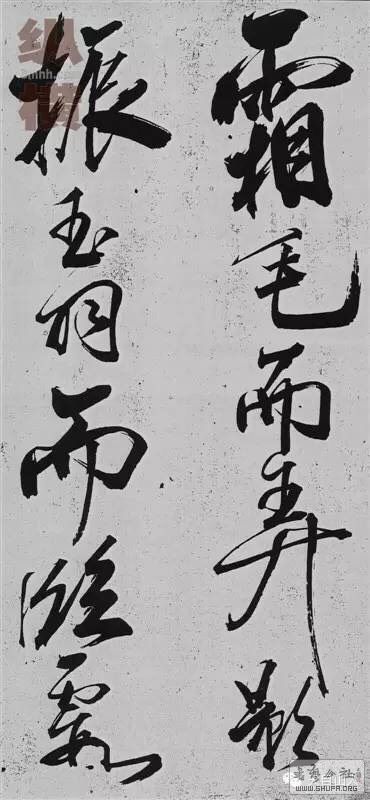 霜毛而弄影
振玉羽而臨霞
纵横
书艺公社
WWW.SHUFA.ORG